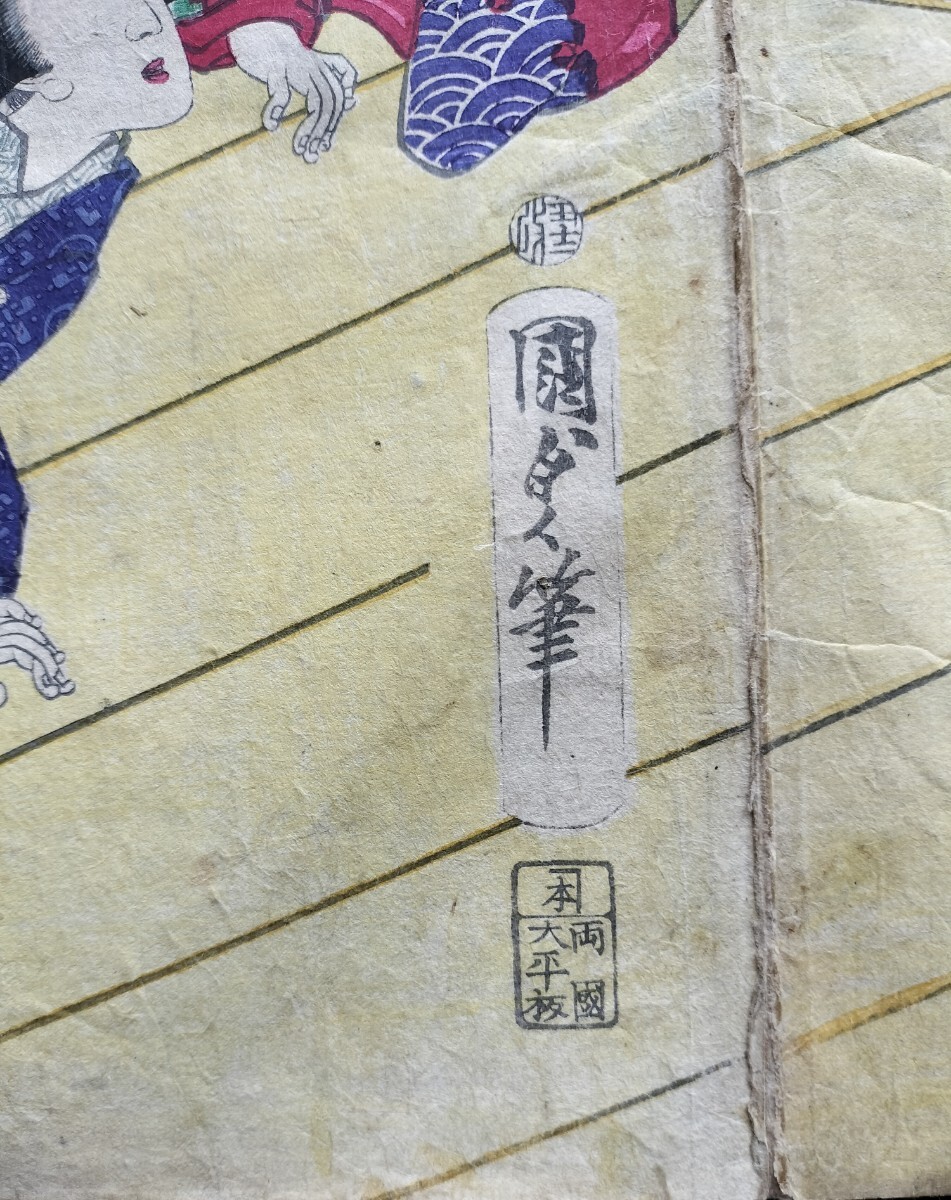 國筆
本
両國
大平板